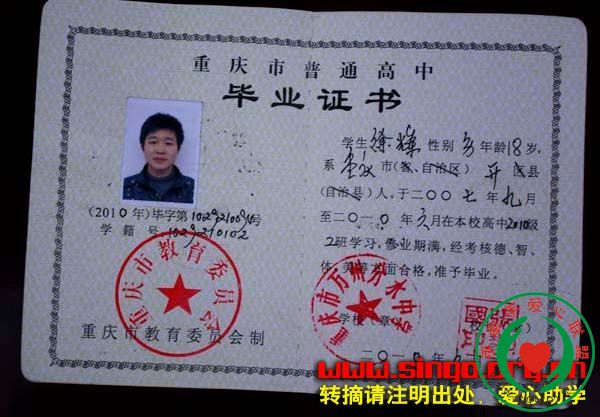 重庆市普通高中
毕业证书
学生徐 性别男年龄18岁，
系重庆市(省、自治区)开县县
(自治县)人，于二〇〇七年九月
至二〇一〇年六月在本校高中2010级
2班学习，修业期满，经考核德、智、
体、美等方面合格，准予毕业。
学校(章)
二〇一〇年
(2010年)毕字第号
学籍号
重庆市教育委员会
重庆市教育委员会制
重庆市万州分水中学
www.singo.org.cn
转摘请注明出处，爱心助学